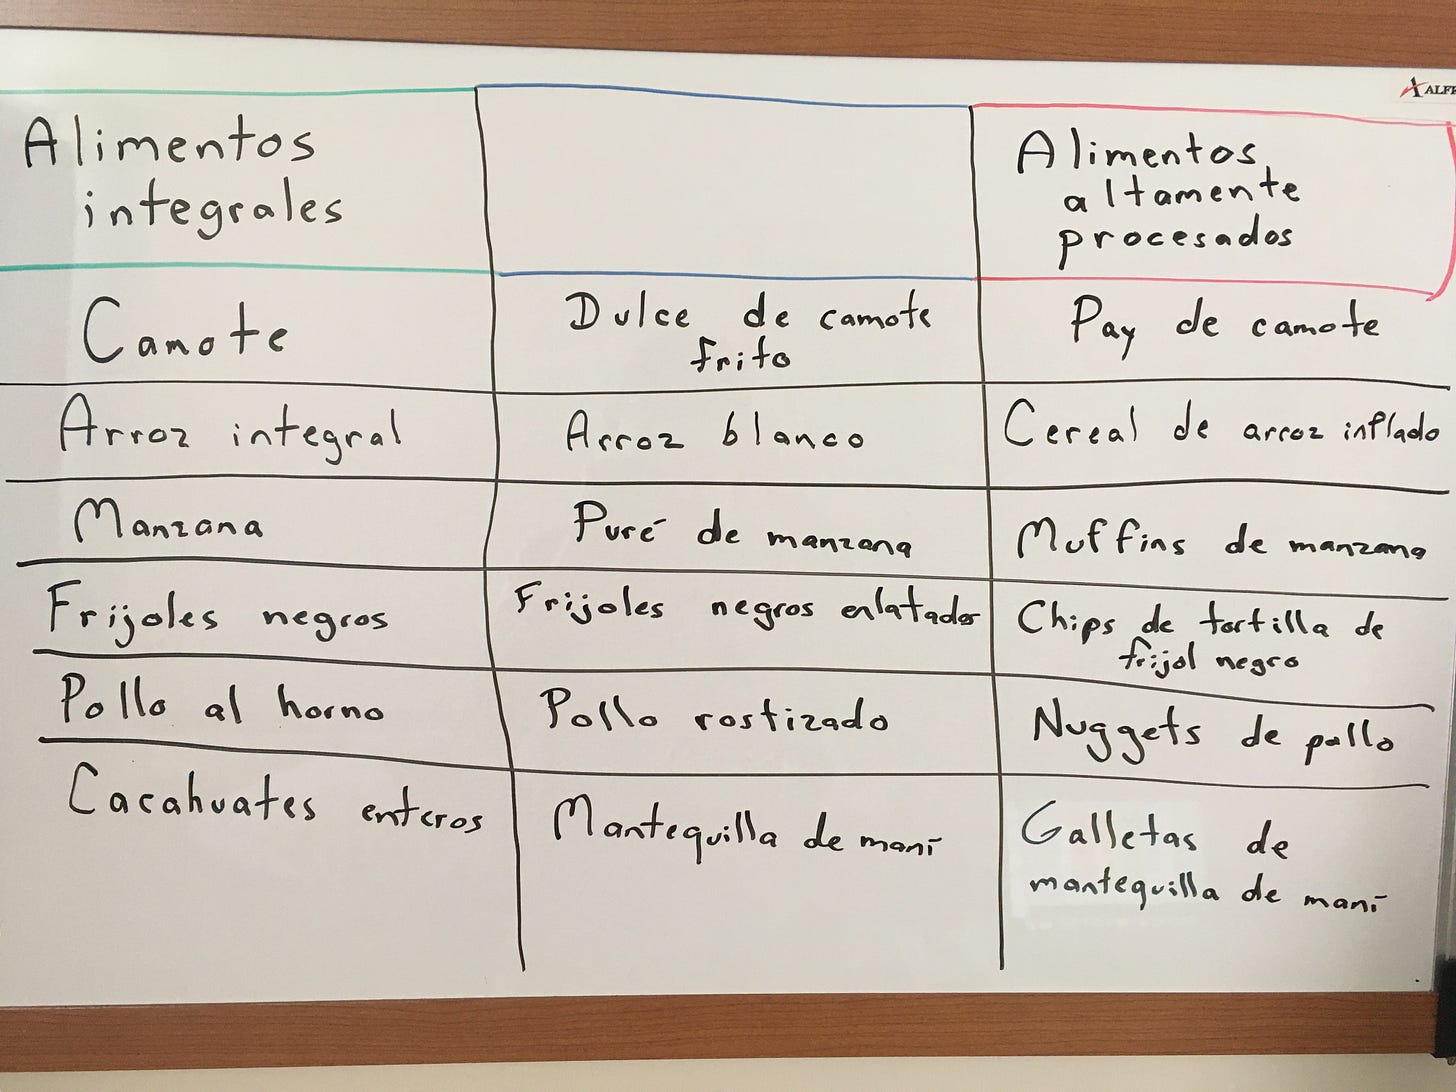 Alimentos
integrales
Alimentos
altamente
procesados
Camote
Dulce de camote
frito
Pay de camote
Arroz integral
Arroz blanco
Cereal de arroz inflado
Manzana
Puré de manzana
Muffins de manzana
Frijoles negros
Frijoles negros enlatados
Chips de tortilla de
frijol negro
Pollo al horno
Pollo rostizado
Nuggets de pollo
Cacahuates enteros
Mantequilla de maní
Galletas de
mantequilla de maní